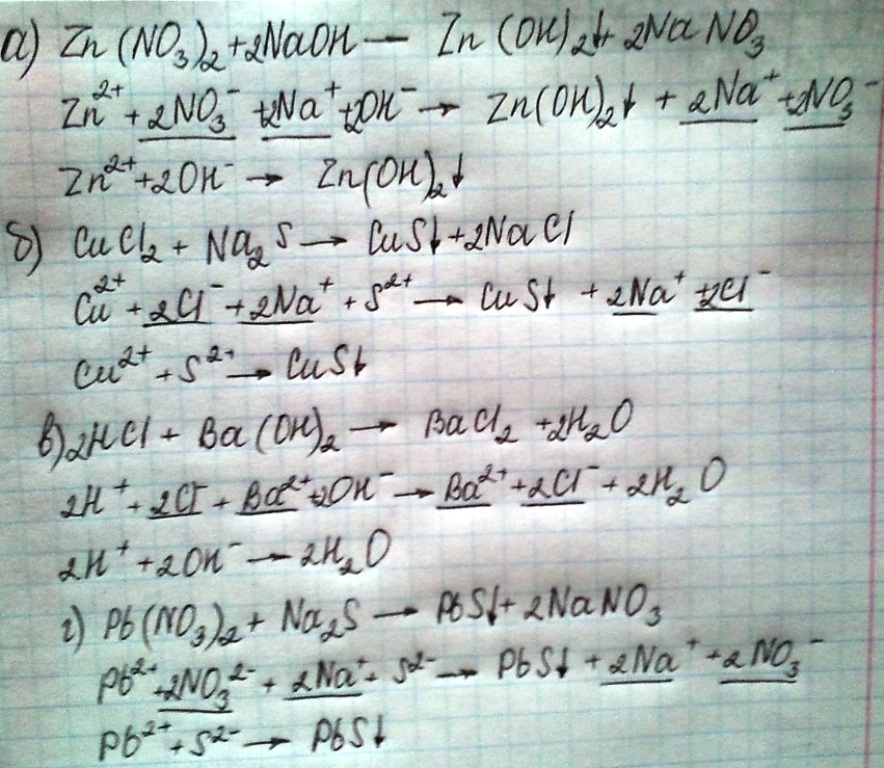 а) Zn(NO₃)₂ + 2NaOH — Zn(OH)₂↓ + 2NaNO₃
Zn²⁺ + 2NO₃⁻ + 2Na⁺ + 2OH⁻ → Zn(OH)₂↓ + 2Na⁺ + 2NO₃⁻
Zn²⁺ + 2OH⁻ → Zn(OH)₂↓
б) CuCl₂ + Na₂S → CuS↓ + 2NaCl
Cu²⁺ + 2Cl⁻ + 2Na⁺ + S²⁺ → CuS↓ + 2Na⁺ + 2Cl⁻
Cu²⁺ + S²⁺ → CuS↓
в) 2HCl + Ba(OH)₂ → BaCl₂ + 2H₂O
2H⁺ + 2Cl⁻ + Ba²⁺ + 2OH⁻ → Ba²⁺ + 2Cl⁻ + 2H₂O
2H⁺ + 2OH⁻ → 2H₂O
г) Pb(NO₃)₂ + Na₂S → PbS↓ + 2NaNO₃
Pb²⁺ + 2NO₃²⁻ + 2Na⁺ + S²⁻ → PbS↓ + 2Na⁺ + 2NO₃⁻
Pb²⁺ + S²⁻ → PbS↓